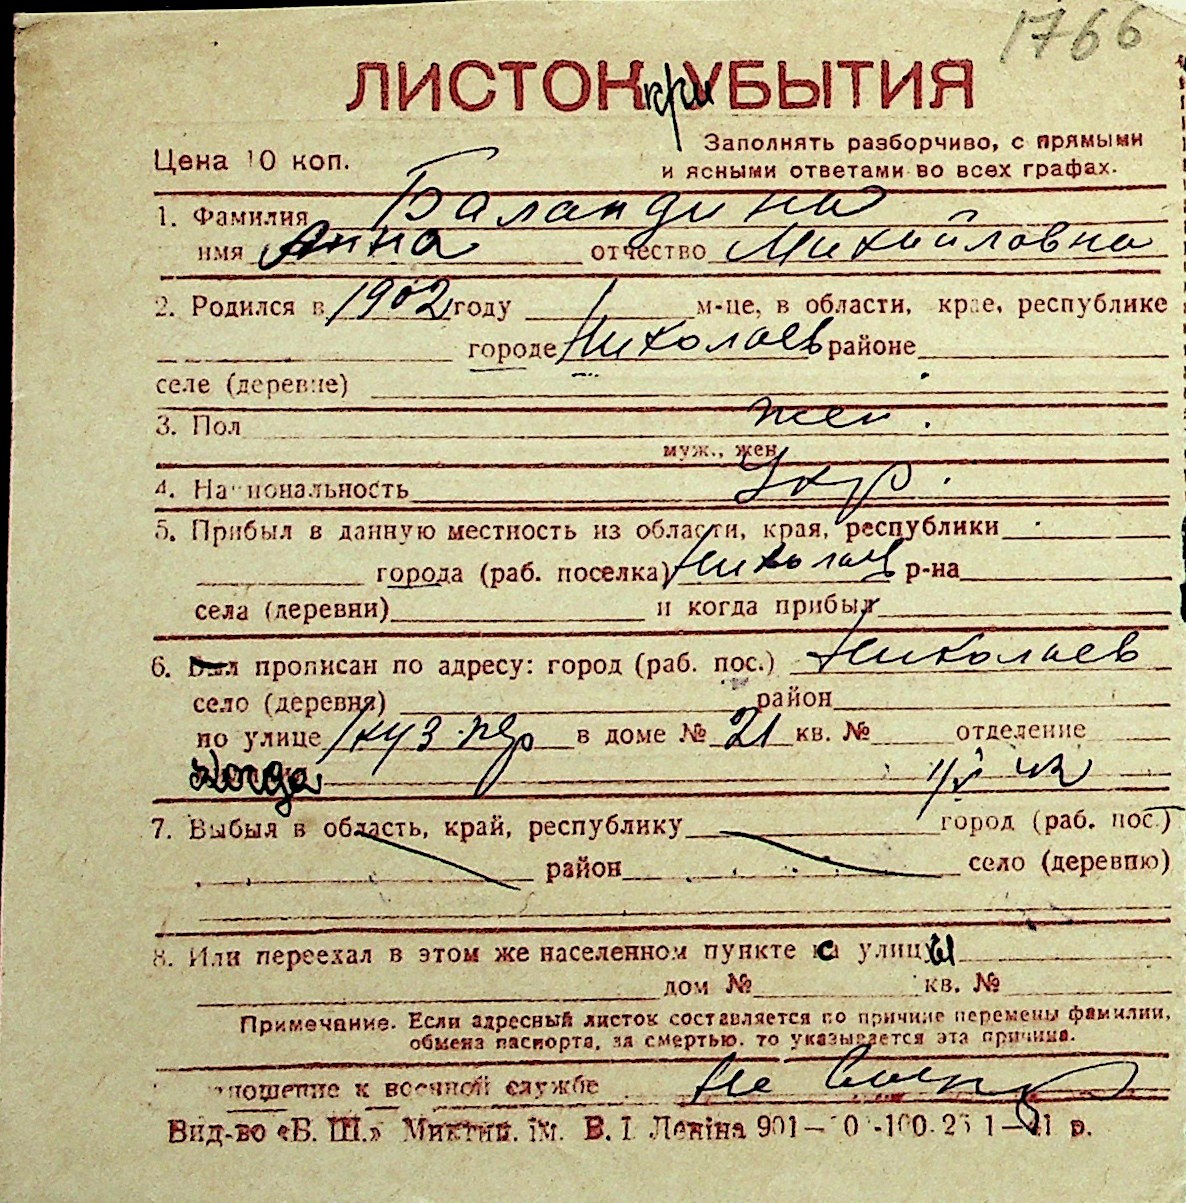 1766
ЛИСТОК при УБЫТИЯ
Цена 10 коп.
Заполнять разборчиво, с прямыми
и ясными ответами во всех графах.
1. Фамилия Баландина
имя Анна отчество Михайловна
2. Родился в 1902 году м-це, в области, крае, республике
городе Николаев районе
селе (деревне)
3. Пол жен.
муж., жен
4. Национальность Укр.
5. Прибыл в данную местность из области, края, республики
города (раб. поселка) Николаев р-на
села (деревни) и когда прибыл
6. Был прописан по адресу: город (раб. пос.) Николаев
село (деревня) район
по улице в доме № 21 кв. № отделение
когда
7. Выбыл в область, край, республику город (раб. пос.)
район село (деревню)
8. Или переехал в этом же населенном пункте с улицы
дом № кв. №
Примечание. Если адресный листок составляется по причине перемены фамилии,
обмена паспорта, за смертью, то указывается эта причина.
тношение к военной службе Не
Вид-во «Б. Ш.» Миктип. ім. В. І. Леніна 901—